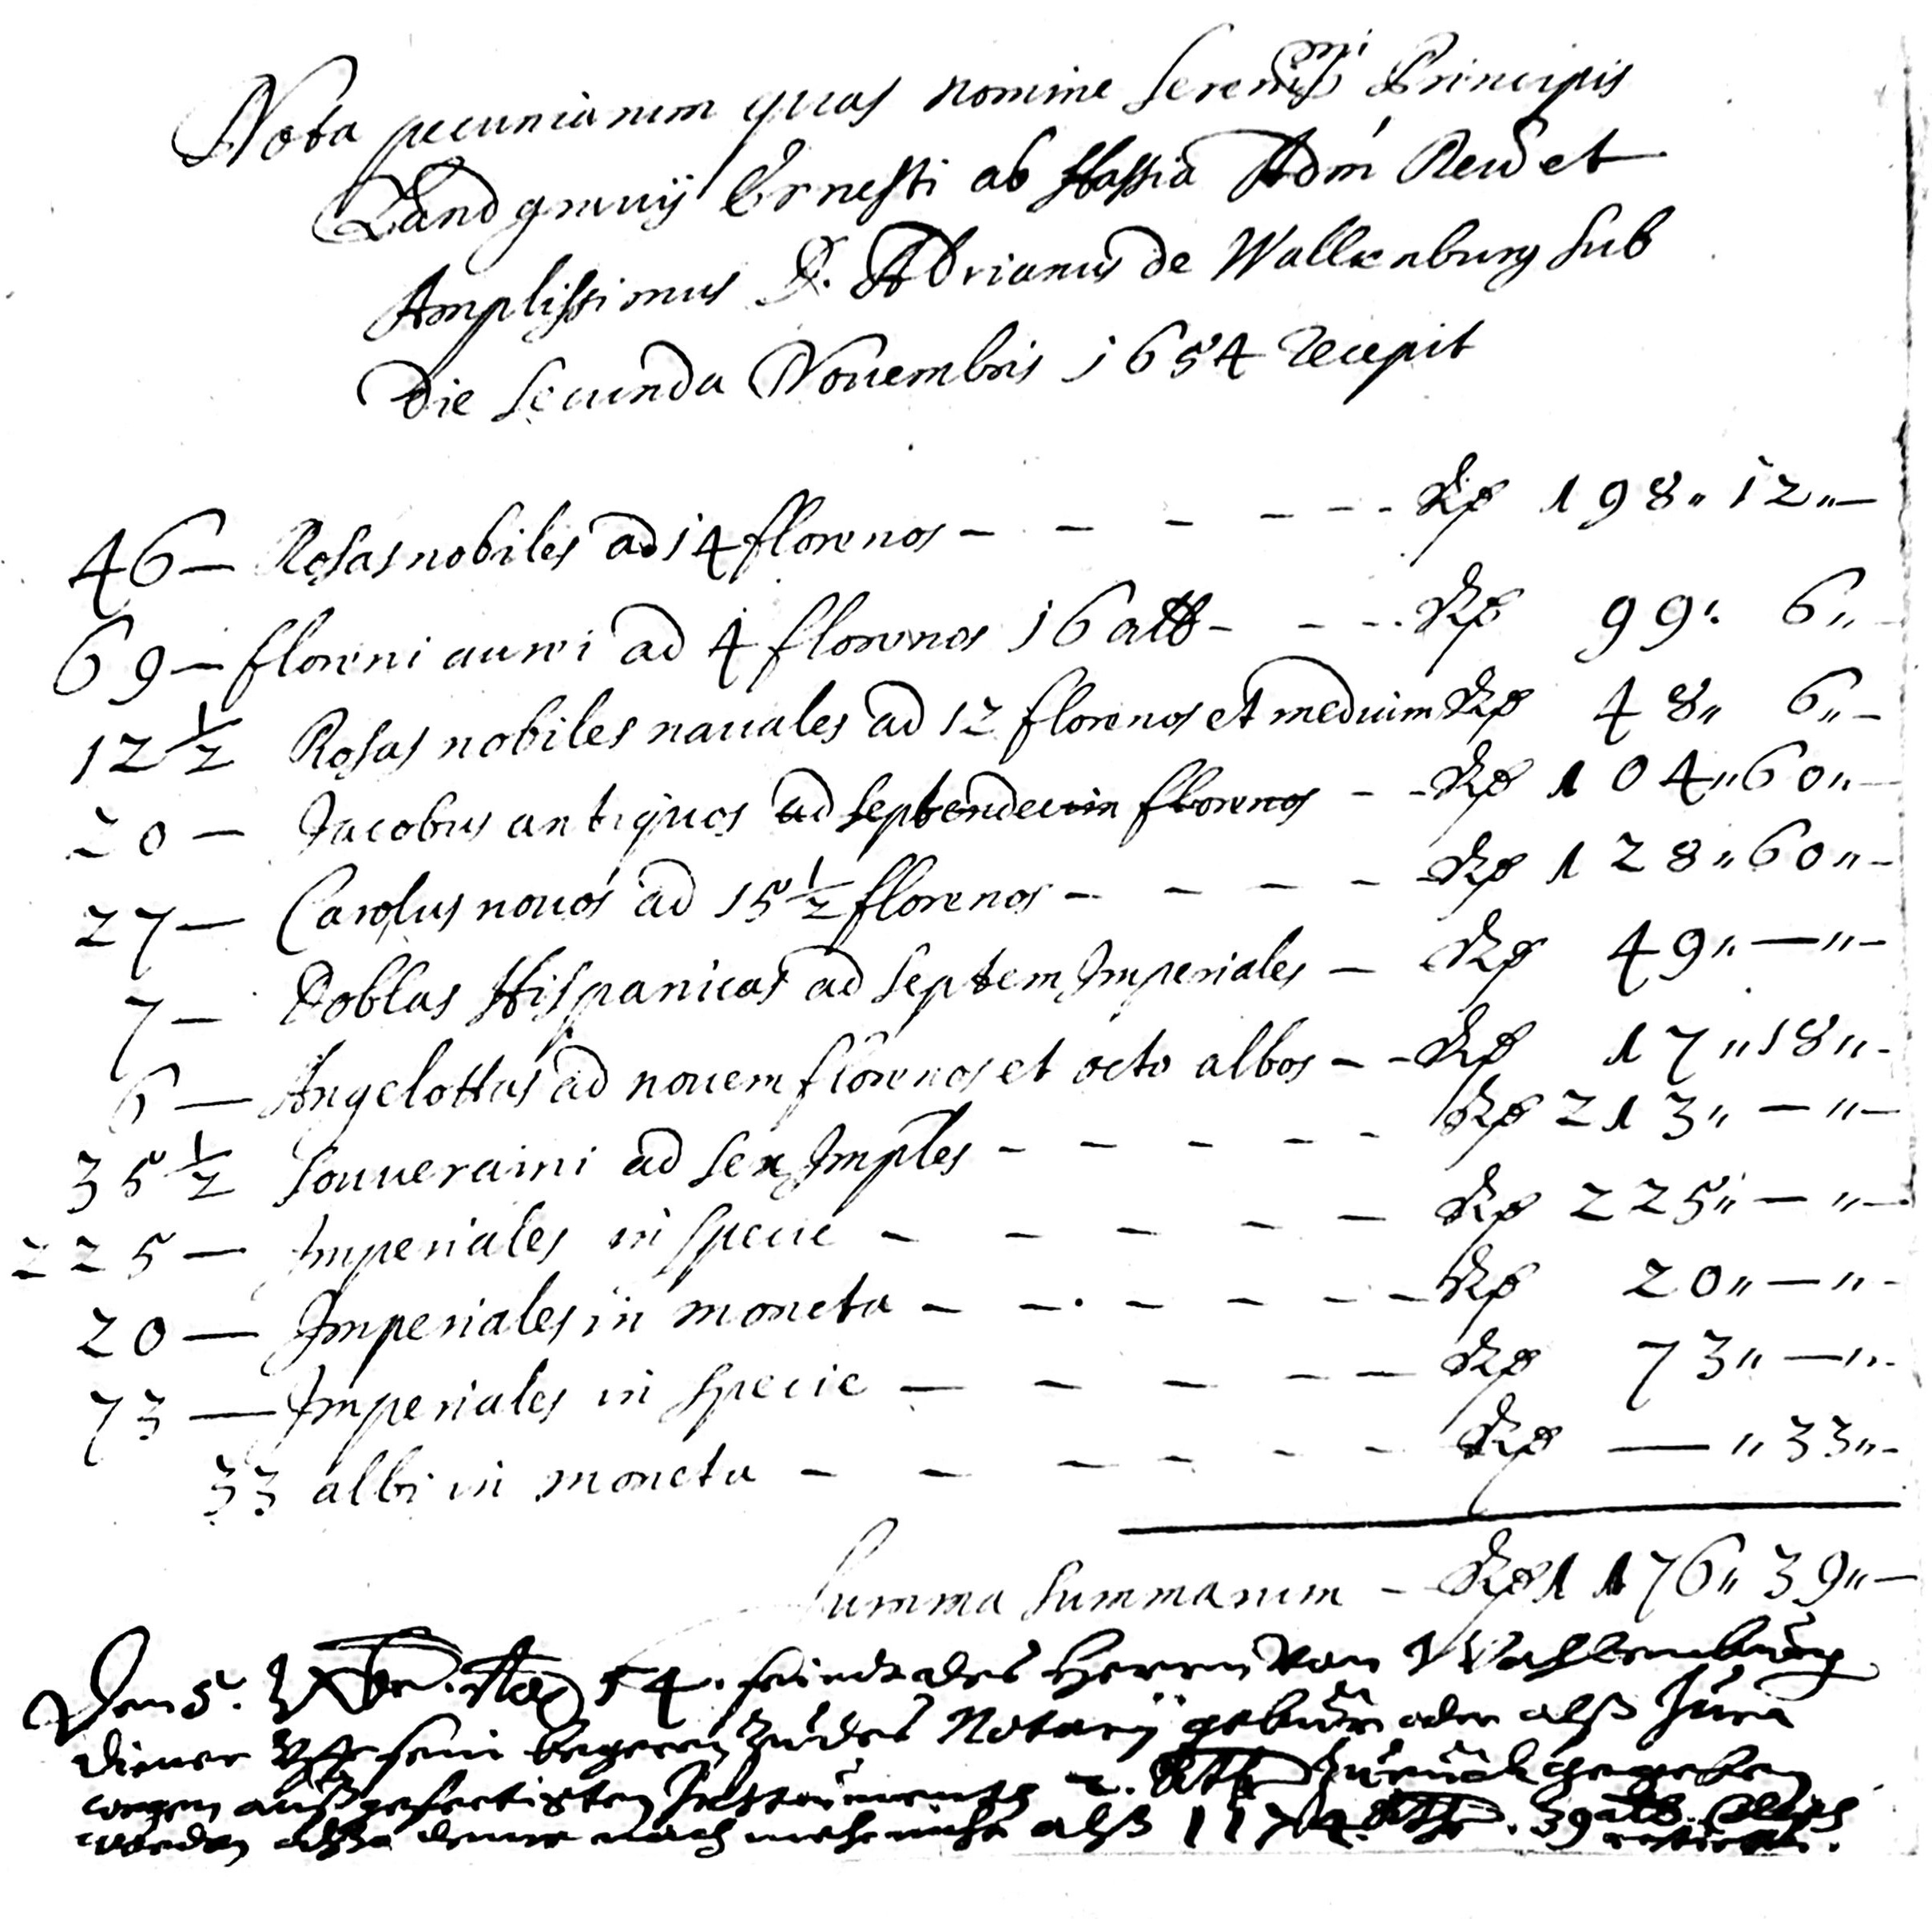 Nota pecuniarum quas nomine Sereniss^mi Principis
Landgravij Ernesti ab Hassia Adm Reud et
Amplissimus D. Adrianus de Wallenburg sub
Die secunda Novembris 1654 recepit
46 — Rosas nobiles ad 14 florenos — — — — — — Rp 198" 12" —
69 — floreni aurei ad 4 florenos 16 alb — — — Rp 99" 6" —
12 1/2 Rosas nobiles navales ad 12 florenos et medium Rp 48" 6" —
20 — Jacobus antiquos ad septendecim florenos — — Rp 104" 60" —
27 — Carolus novos ad 15 1/2 florenos — — — — Rp 128" 60" —
7 — Doblas Hispanicas ad septem Imperiales — Rp 49" — " —
6 — Angelottus ad novem florenos et octo albos — — Rp 17" 18" —
35 1/2 Souveraini ad sex Imples — — — — — Rp 213" — " —
225 — Imperiales in specie — — — — — Rp 225" — " —
20 — Imperiales in moneta — — — — — — Rp 20" — " —
73 — Imperiales in specie — — — — — Rp 73" — " —
33 albi in moneta — — — — — — Rp — " 33" —
Summa summarum — Rp 1176" 39" —
Den 5. 54. seindt des Herren von Wallenburg
diener sein begeren zu des Notarij gebür oder alß Jura
wegen außgefertigten Instruments 2. Rth zurück gegeben
worden also nach mehr nicht alß 1174 Rth. 39 alb.